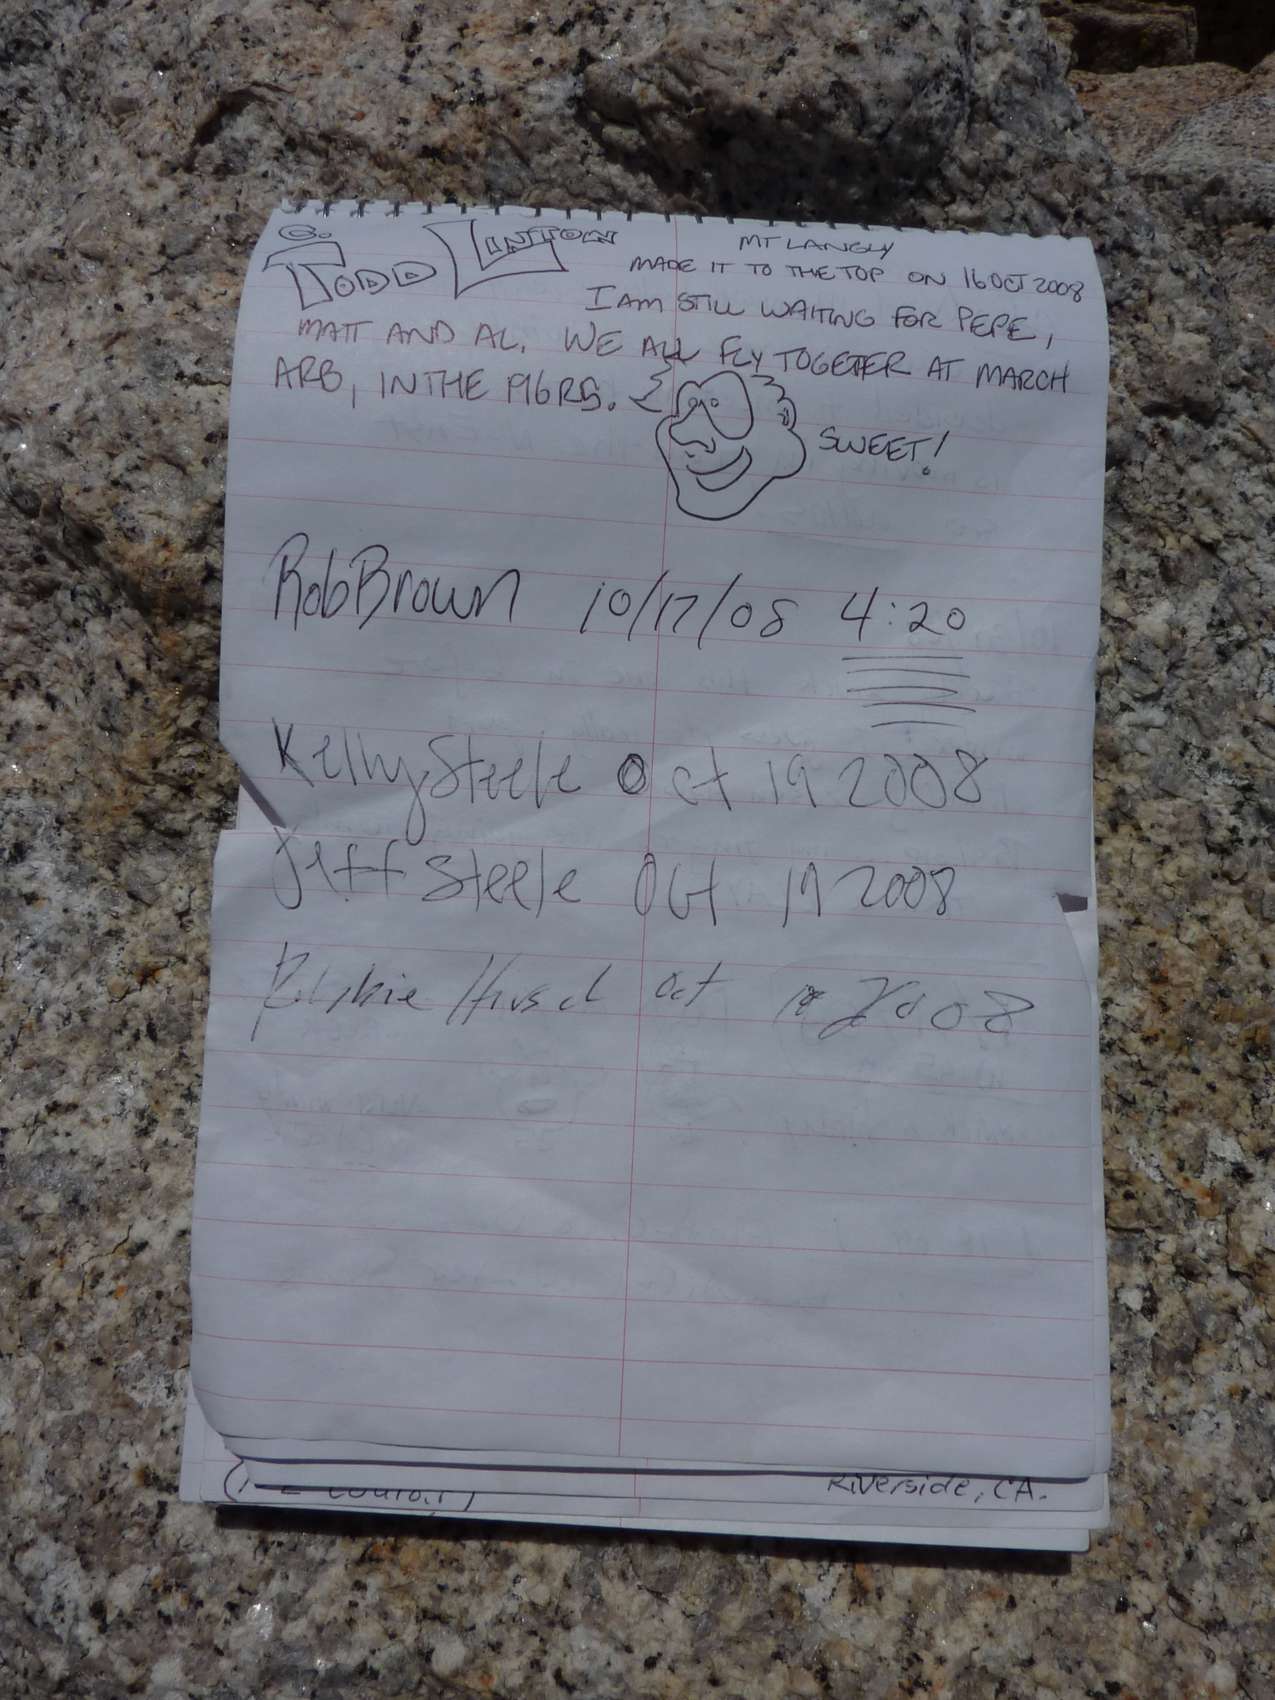 G. TODD LINTON
MT LANGLY
MADE IT TO THE TOP ON 16 OCT 2008
I AM STILL WAITING FOR PEPE,
MATT AND AL. WE ALL FLY TOGETHER AT MARCH
ARB, IN THE
SWEET!
Rob Brown 10/17/08 4:20
Kelly Steele Oct 19 2008
Jeff Steele Oct 19 2008
Oct 2008
Riverside, CA.